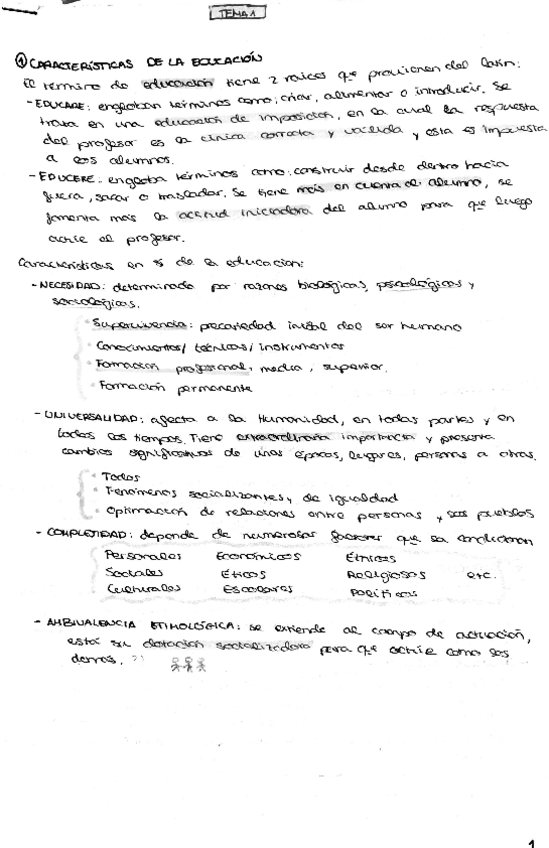 TEMA 1
① CARACTERÍSTICAS DE LA EDUCACIÓN
El término de educación tiene 2 raíces que provienen del latín:
- EDUCARE: engloban términos como; criar, alimentar o introducir. Se
trata en una educación de imposición, en la cual la respuesta
del profesor es la única correcta y válida y esta es impuesta
a los alumnos.
- EDUCERE: engloba términos como: construir desde dentro hacia
fuera, sacar o trasladar. Se tiene más en cuenta al alumno, se
fomenta más la actitud iniciadora del alumno para que luego
actúe el profesor.
Características en sí de la educación:
- NECESIDAD: determinada por razones biológicas, psicológicas y
sociológicas.
· Supervivencia: precariedad inicial del ser humano
· Conocimientos/ técnicas/ instrumentos
· Formación profesional, media, superior.
· Formación permanente
- UNIVERSALIDAD: afecta a la Humanidad, en todas partes y en
todos los tiempos. Tiene extraordinaria importancia y presenta
cambios significativos de unas épocas, lugares, personas a otras.
· Todos
· Fenómenos socializantes, de igualdad
· Optimación de relaciones entre personas y sus pueblos
- COMPLEJIDAD: depende de numerosos factores que la condicionan
Personales Económicos Étnicos
Sociales Éticos Religiosos etc.
Culturales Escolares Políticos
- AMBIVALENCIA ETIMOLÓGICA: se extiende al campo de actuación,
está su dotación socializadora para que actúe como los
demás. ?!
1